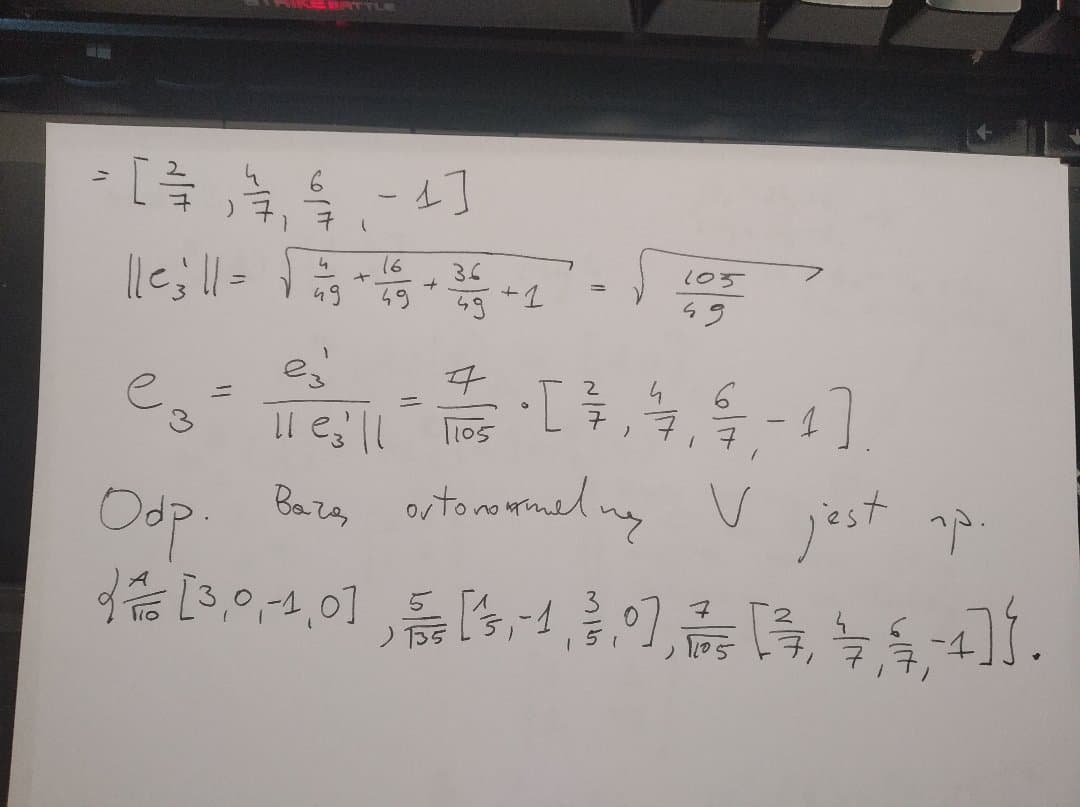 STRIKE BATTLE
= [2/7, 4/7, 6/7, -1]
||e₃'|| = √(4/49 + 16/49 + 36/49 + 1) = √(105/49)
e₃ = e₃'/||e₃'|| = 7/√105 · [2/7, 4/7, 6/7, -1].
Odp. Bazą ortonormalną V jest np.
{1/√10 [3,0,-1,0], 5/√35 [1/5,-1,3/5,0], 7/√105 [2/7, 4/7, 6/7, -1]}.